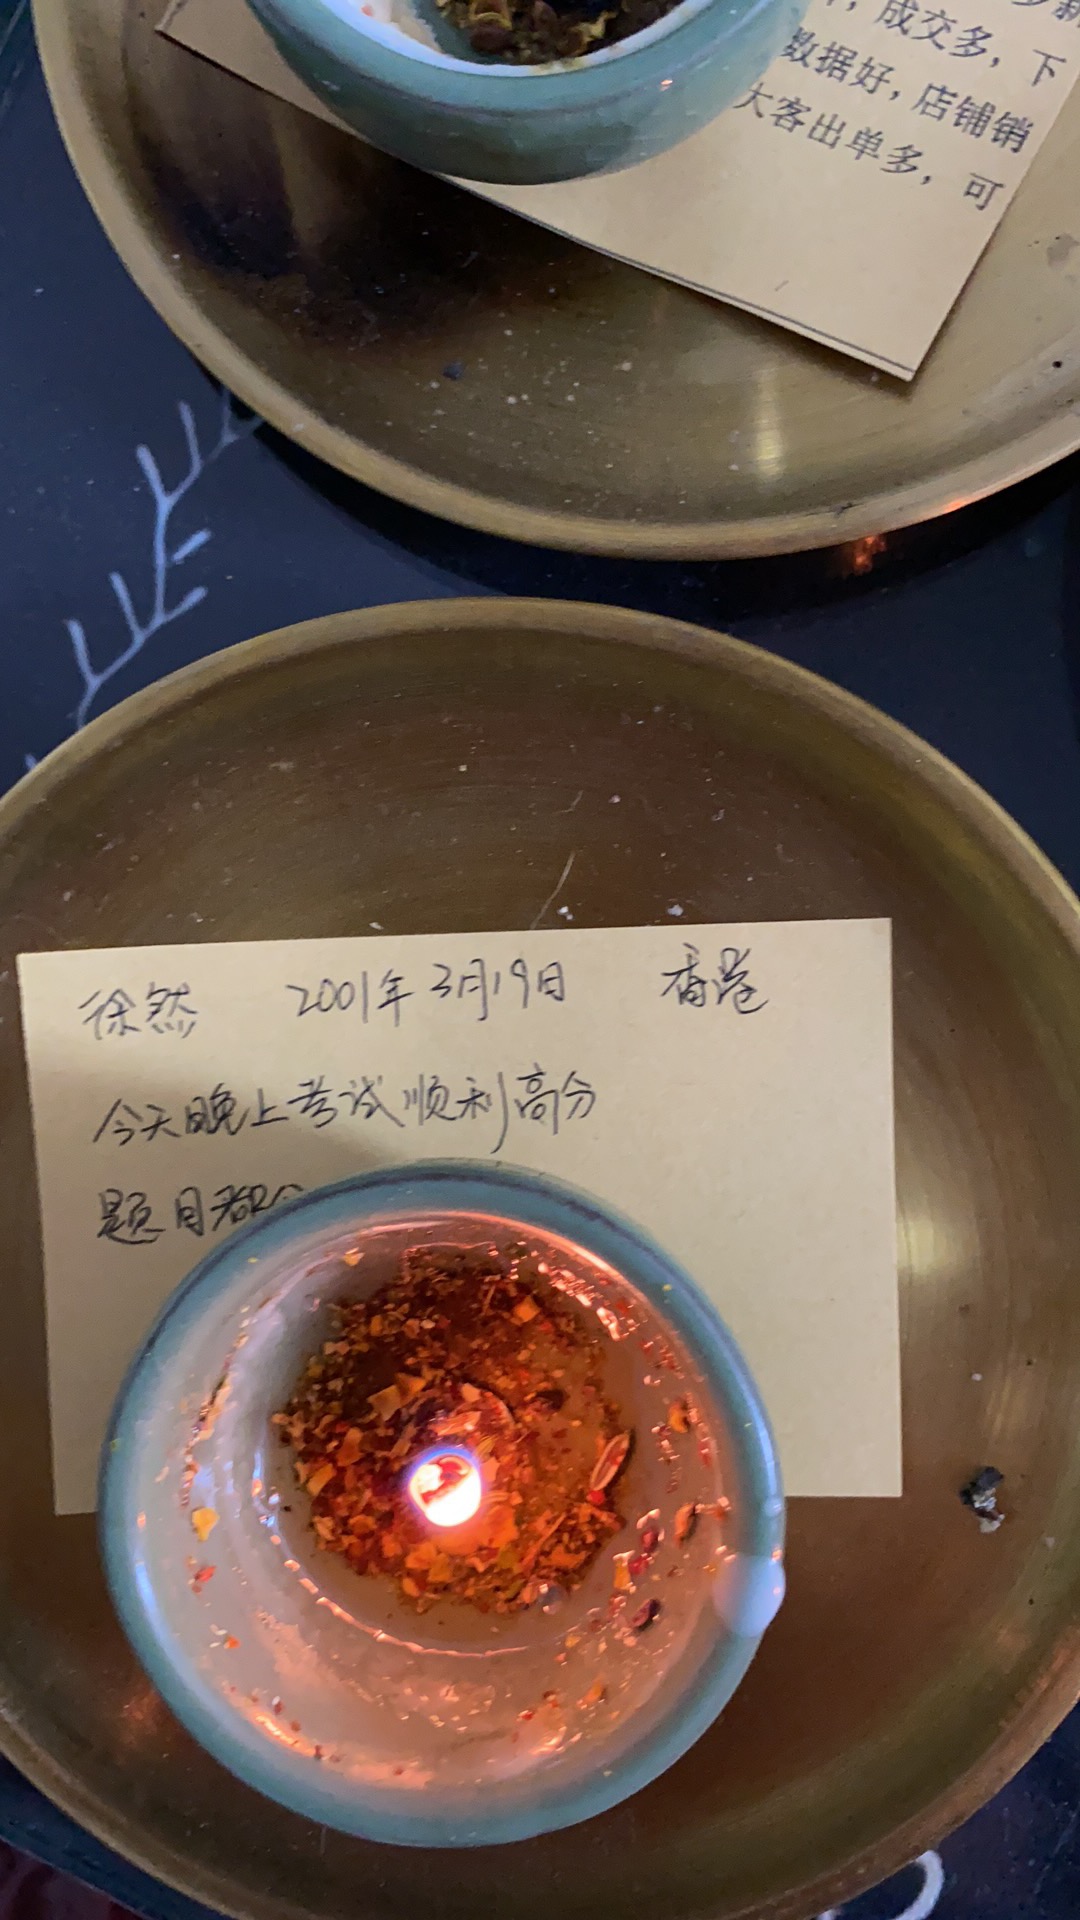 成交多，下
数据好，店铺销
大客出单多，可
徐然 2001年3月19日 香港
今天晚上考试顺利高分
题目都